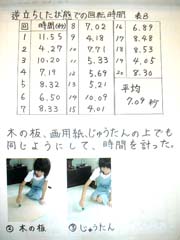 逆立ちした状態での回転時間 表8
回 時間(秒) 8 7.02 16 6.89
1 11.55 9 4.18 17 8.48
2 4.27 10 7.71 18 8.53
3 10.20 11 5.33 19 4.05
4 7.19 12 5.69 20 8.30
5 8.32 13 6.21 平均
6 6.50 14 10.09 7.09秒
7 8.33 15 4.01
木の板、画用紙、じゅうたんの上でも
同じようにして、時間を計った。
② 木の板 ③ じゅうたん